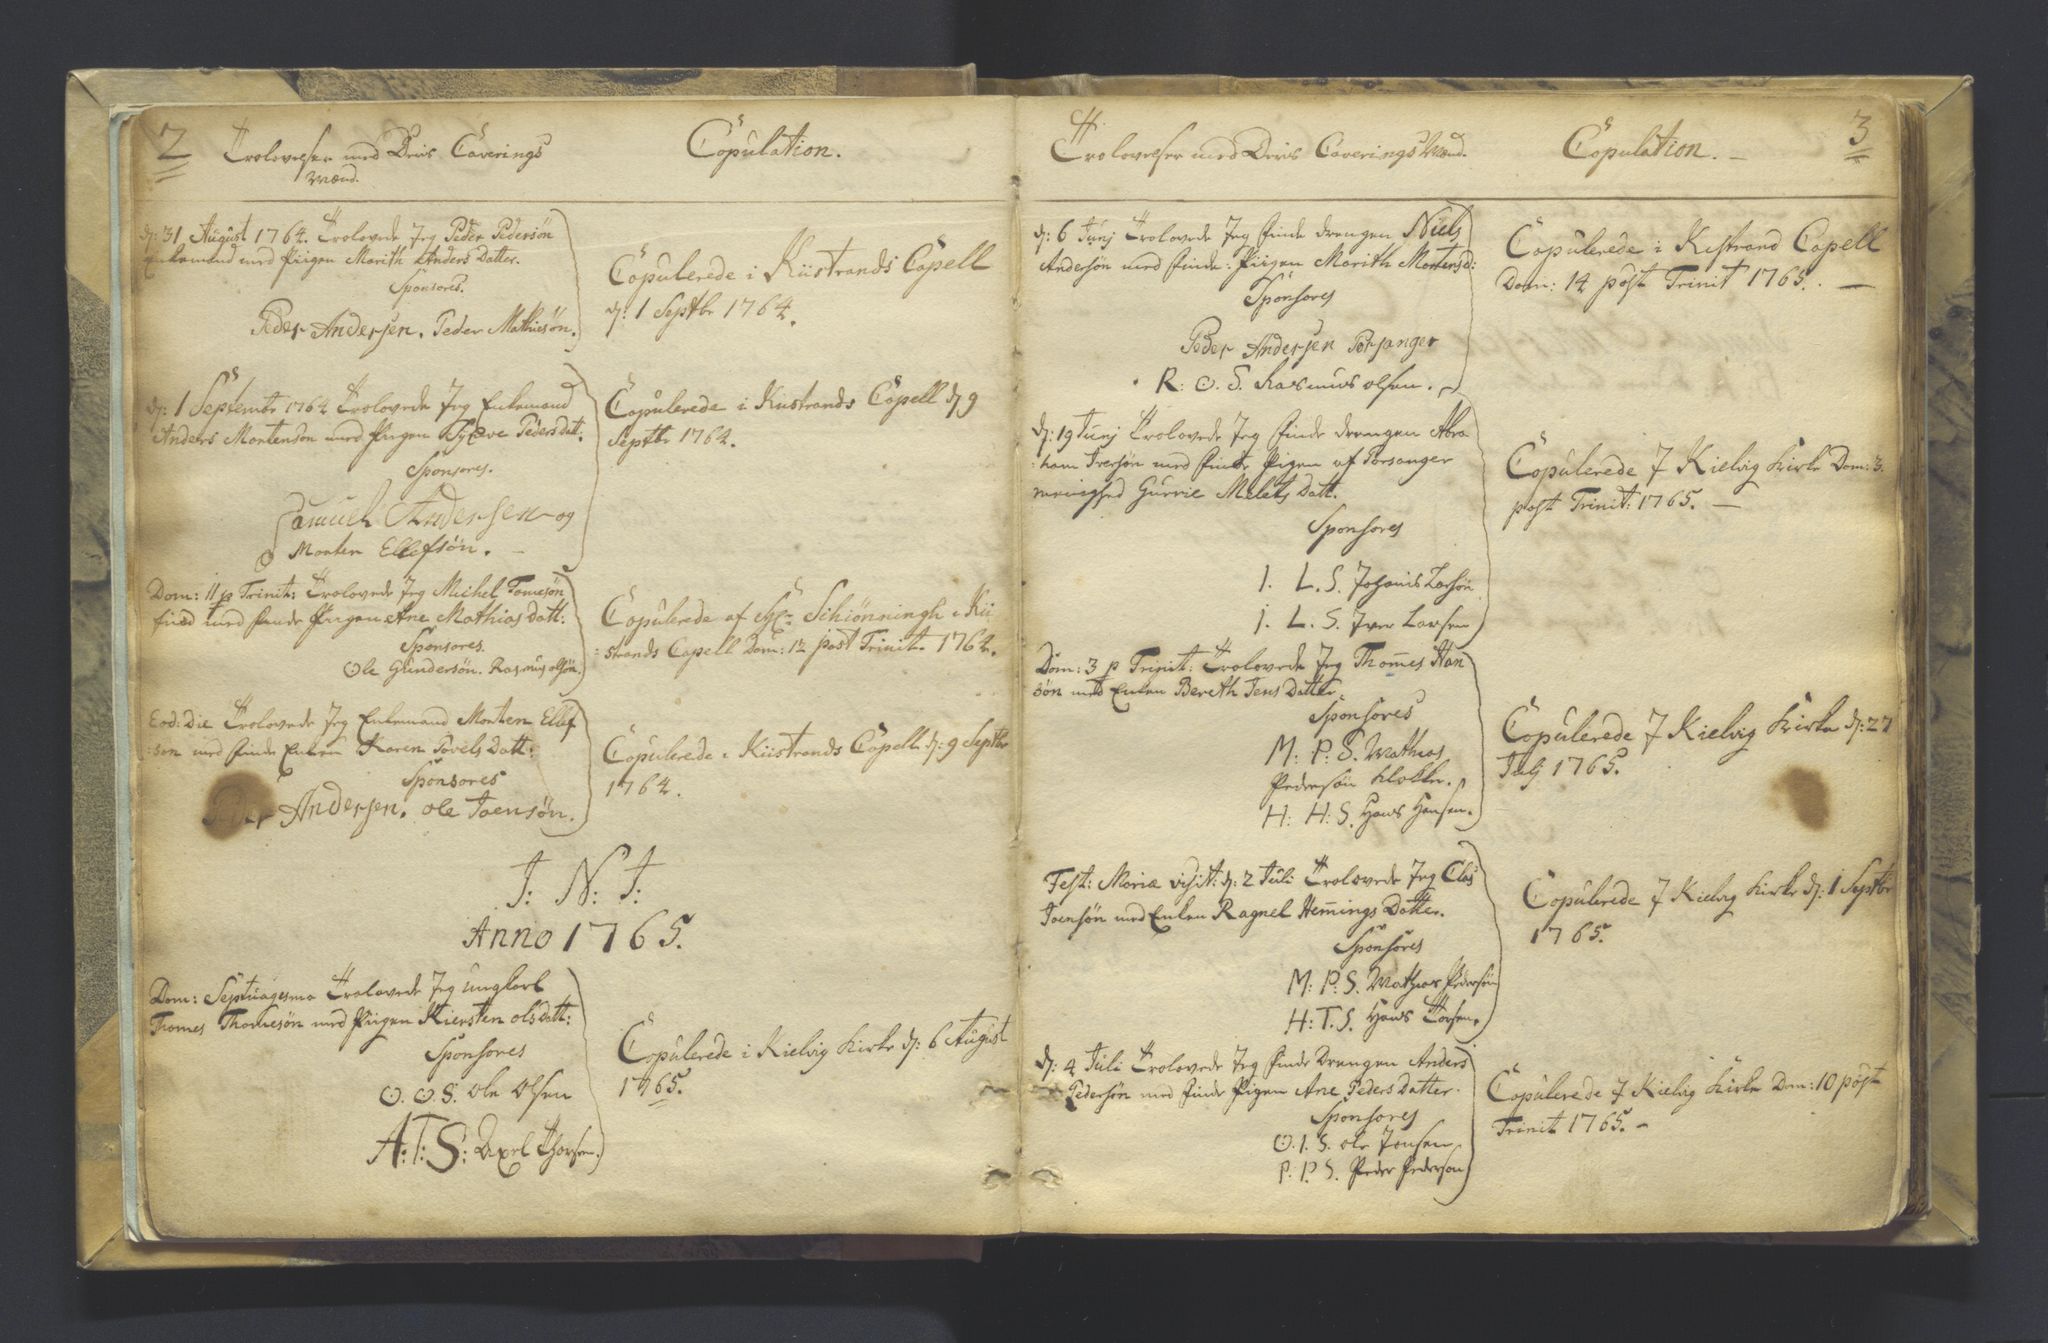 2
Trolovelser med Deris Caverings
Mænd.
Copulation.
d: 31 August 1764. Trolovede Jeg Peder Pedersön
Enkemand med Piigen Marith Anders Datter.
Sponsores.
Peder Andersen. Peder Mathiesön.
Copulerede i Kiistrands Capell
d: 1 Septbr 1764.
d: 1 Septembr 1764 Trolovede Jeg Enkemand
Anders Mortensön med Pigen Pedersdatt.
Sponsores.
Samuel Andersen og
Morten Ellefsön.
Copulerede i Kiistrands Capell d 9
Septbr 1764.
Dom: 11 p Trinit: Trolovede Jeg Michel Tomesön
find med finde Piigen Ane Mathias Datt:
Sponsores.
Ole Gundersön. Rasmus olsön.
Copulerede af Schiönningh i Kii
strands Capell Dom: 12 post Trinit. 1764.
Eod: Die Trolovede Jeg Enkemand Morten Ellef
:sön med finde Enken Karen Povels Datt:
Sponsores
Peder Andersen. ole Joensön.
Copulerede i Kiistrands Capell d: 9 Septbr
1764.
J: N: J:
Anno 1765.
Dom: Septuagesma Trolovede Jeg ungkarl
Thomes Thomesön med Piigen Kiersten olsdatt:
Sponsores
O. O. S: ole olsen
A: T: S: Axel Thorsen.
Copulerede i Kielvig Kirke d: 6 August
1765.
3
Trolovelser med Deris Caverings Mænd.
Copulation.
d: 6 Junj Trolovede Jeg finde drengen Niels
Andersön med finde: Piigen Marith Mortensd:
Sponsores
Peder Andersen Porsanger
R: O. S. Rasmus olsen.
Copulerede i Kistrand Capell
Dom: 14 post Trinit 1765.
d: 19 Junj Trolovede Jeg finde drengen Abra
:ham Iversön med finde Pigen af Porsanger
menighed Gurrie Datt.
Sponsores
J. L. S. Johanis Larsön
J. L. S. Iver Larsen
Copulerede J Kielvig Kirke Dom: 3.
post Trinit: 1765.
Dom: 3 p Trinit: Trolovede Jeg Thomes Han
sön med Enken Bereth Jens Datter
Sponsores
M: P: S. Mathias
Pedersön Klokker.
H: H: S. Hans Hansen.
Copulerede J Kielvig Kirke d: 27
Julj 1765.
Fest: Mariæ visit: d: 2 Juli Trolovede Jeg Clas
Joensön med Enken Ragnel Hemings Datter.
Sponsores
M: P: S. Mathias Pedersön
H: T. S. Hans Torsen.
Copulerede J Kielvig Kirke d: 1 Septbr
1765.
d: 4 Juli Trolovede Jeg finde Drengen Anders
Pedersön med finde Pigen Ane Peders Datter.
Sponsores
O. J. S. ole Jonsen
P. P. S. Peder Pederson
Copulerede J Kielvig Kirke Dom: 10 post
Trinit 1765.